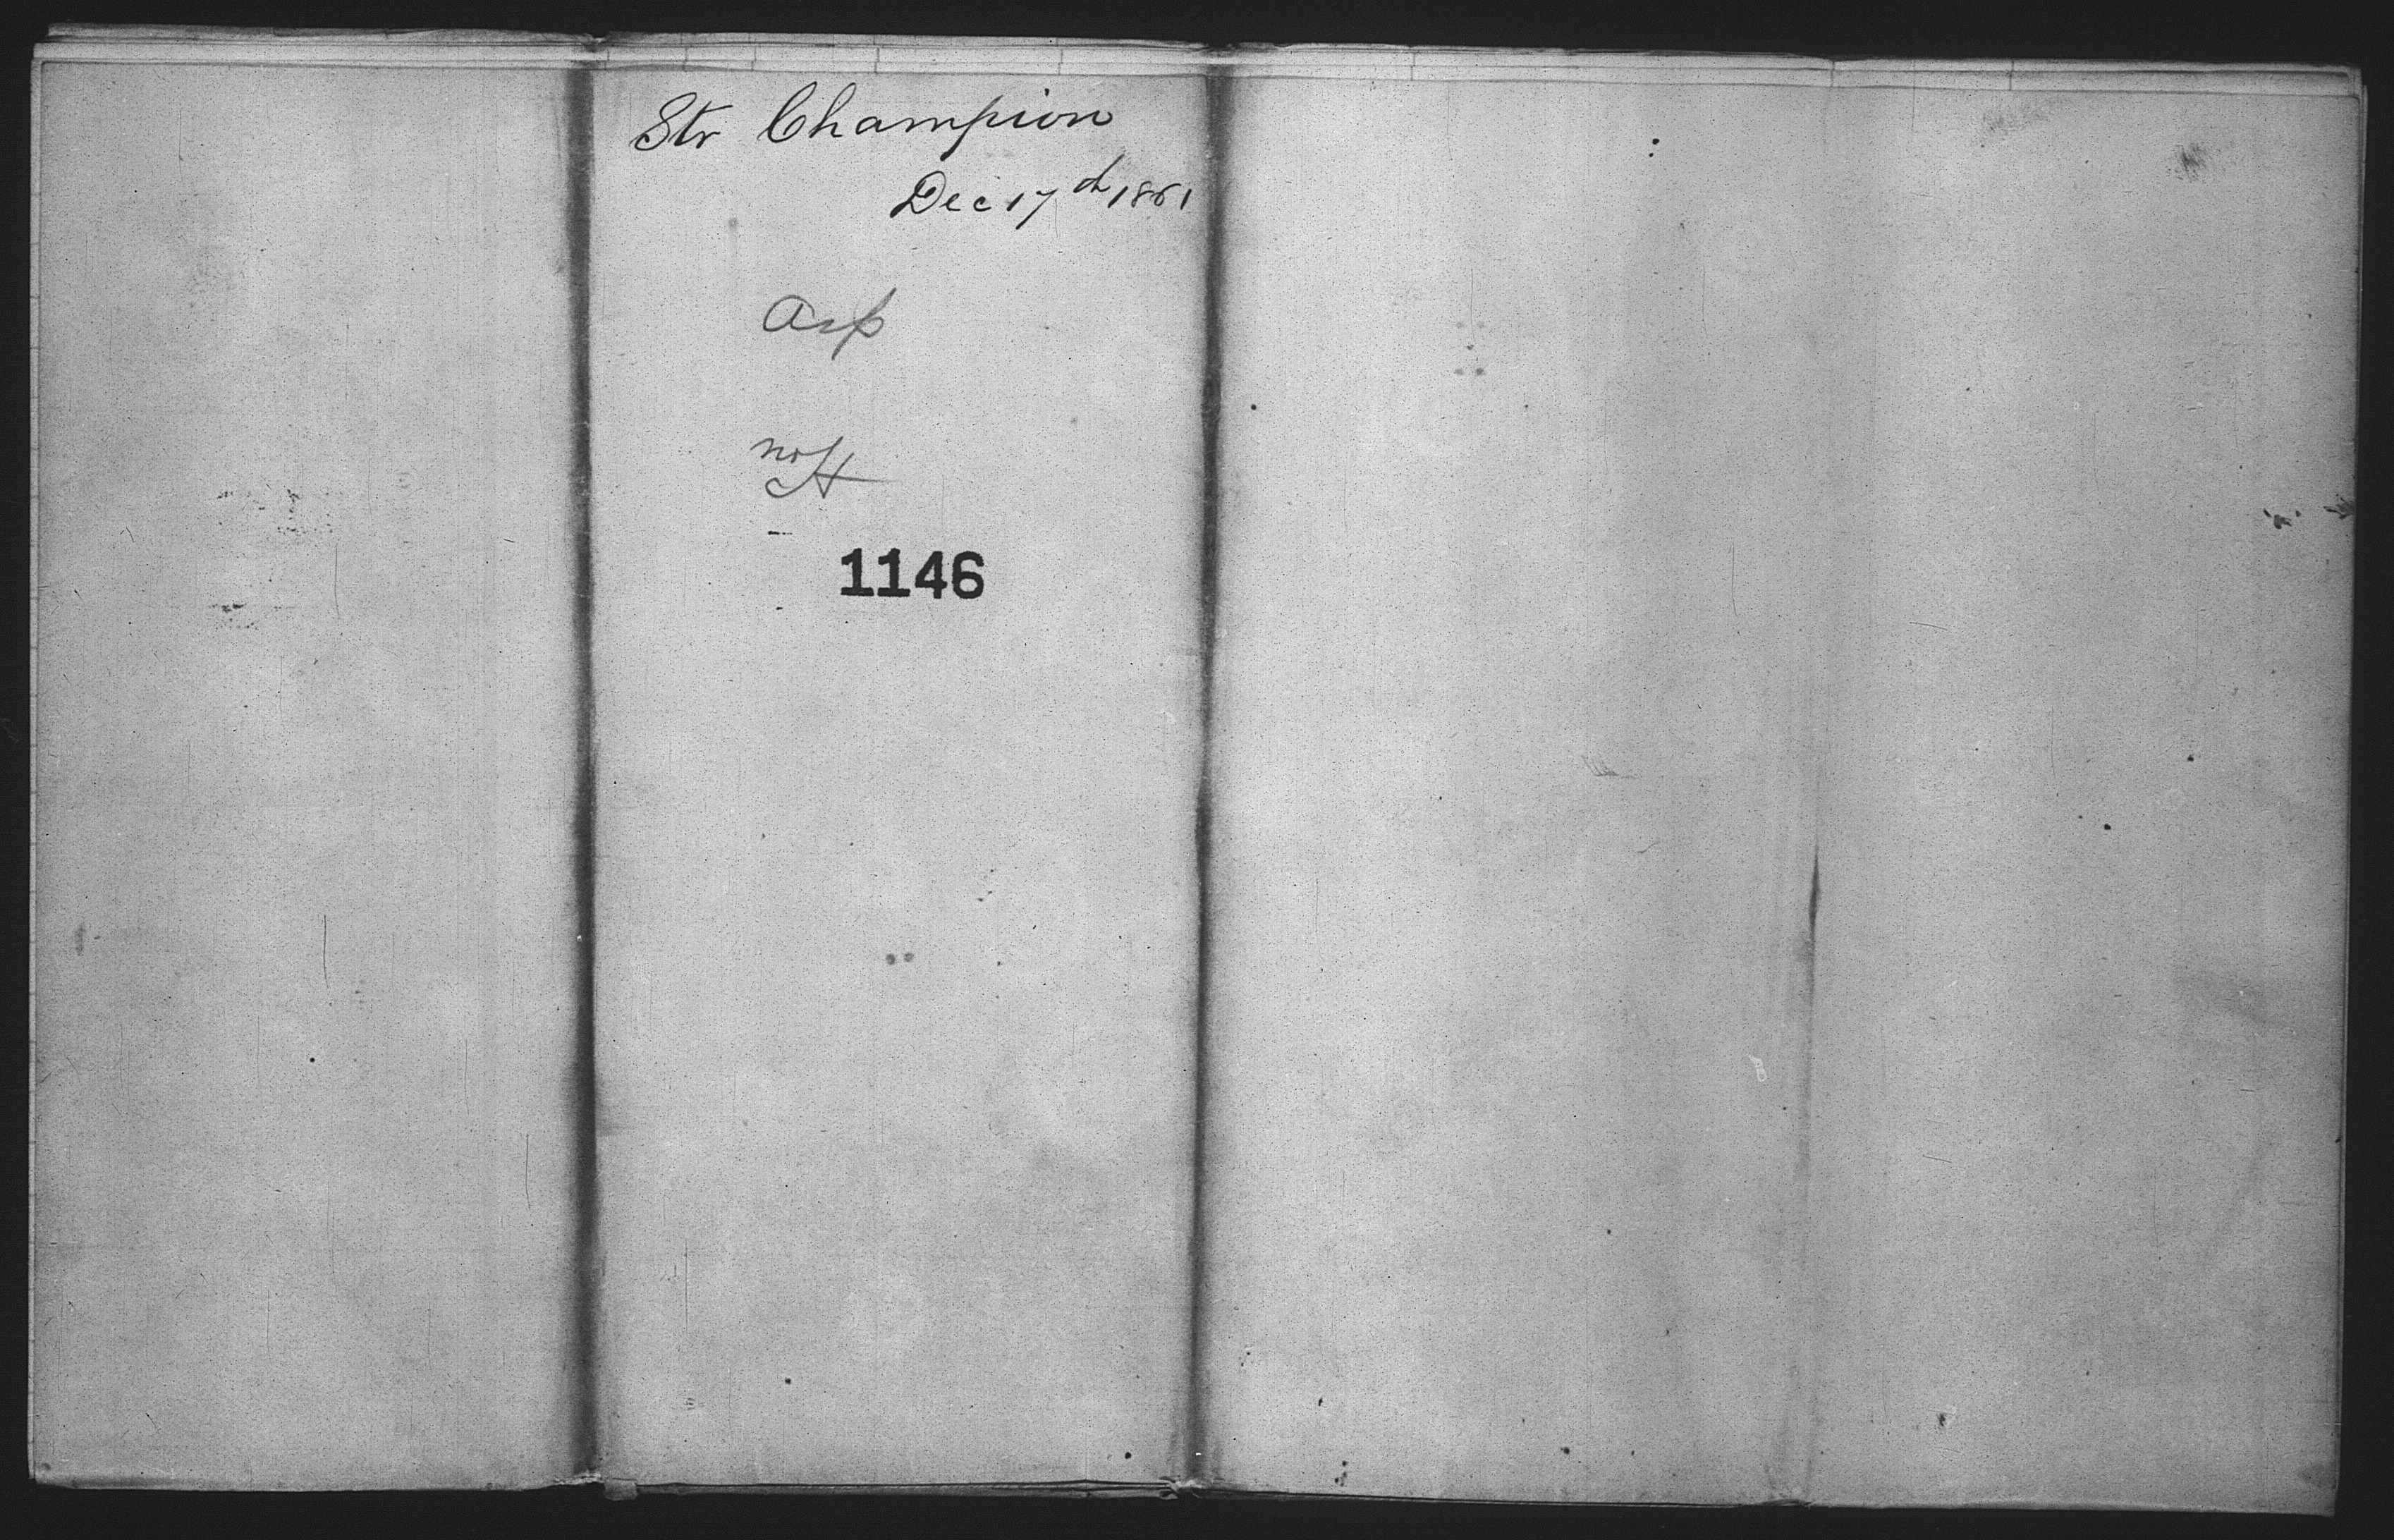 Str Champion
Dec 17th 1861
Asp
1146